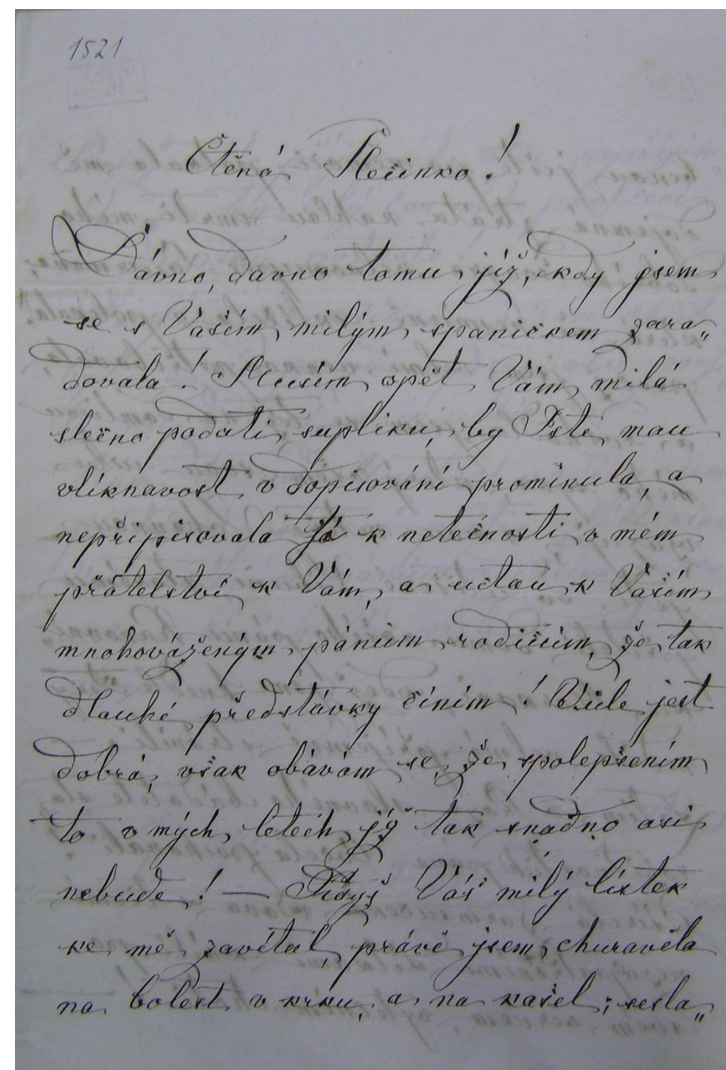 1521
Ctěná Slečinko!
Dávno, davno tomu již, kdy jsem
se s Vašém milým spaníčkem zara„
dovala! Musém opět Vám milá
slečno podati supliku, by Isté mau
vlíknavost v dopisování prominula, a
nepřipisovala já k netečnosti v mém
přátelství k Vám, a uctau k Vašim
mnohováženým pánům rodičům, že tak
dlauhé předstávky činím! Vůle jest
dobrá, však obávám se, že s polepšením
to v mých letech již tak snadno asi
nebude! —  Váš milý lístek
ke mě zavítal, právě jsem churavěla
na bolest v krku, a na kašel; sesla„